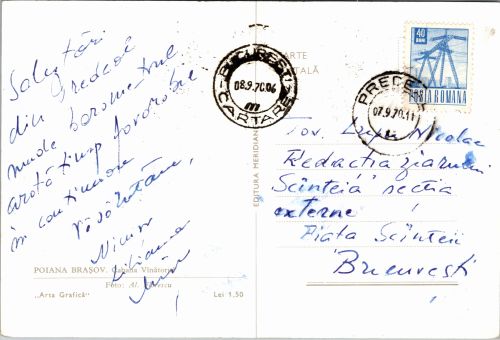 Salutări
din Predeal
unde barometrul
arată timp favorabil
în continuare
Nicu
Liliana
POIANA BRAȘOV. Cabana Vînătorilor
Foto: Al. Florescu
„Arta Grafică”
Lei 1,50
EDITURA MERIDIANE
CARTE
POȘTALĂ
BUCUREȘTI
08.9.70.06
CARTARE
PREDEAL
07.9.70.11
40
BANI
POSTA ROMANA
Tov. Lupu Nicolae
Redacția ziarului
Scînteia secția
externe
Piața Scînteii
București